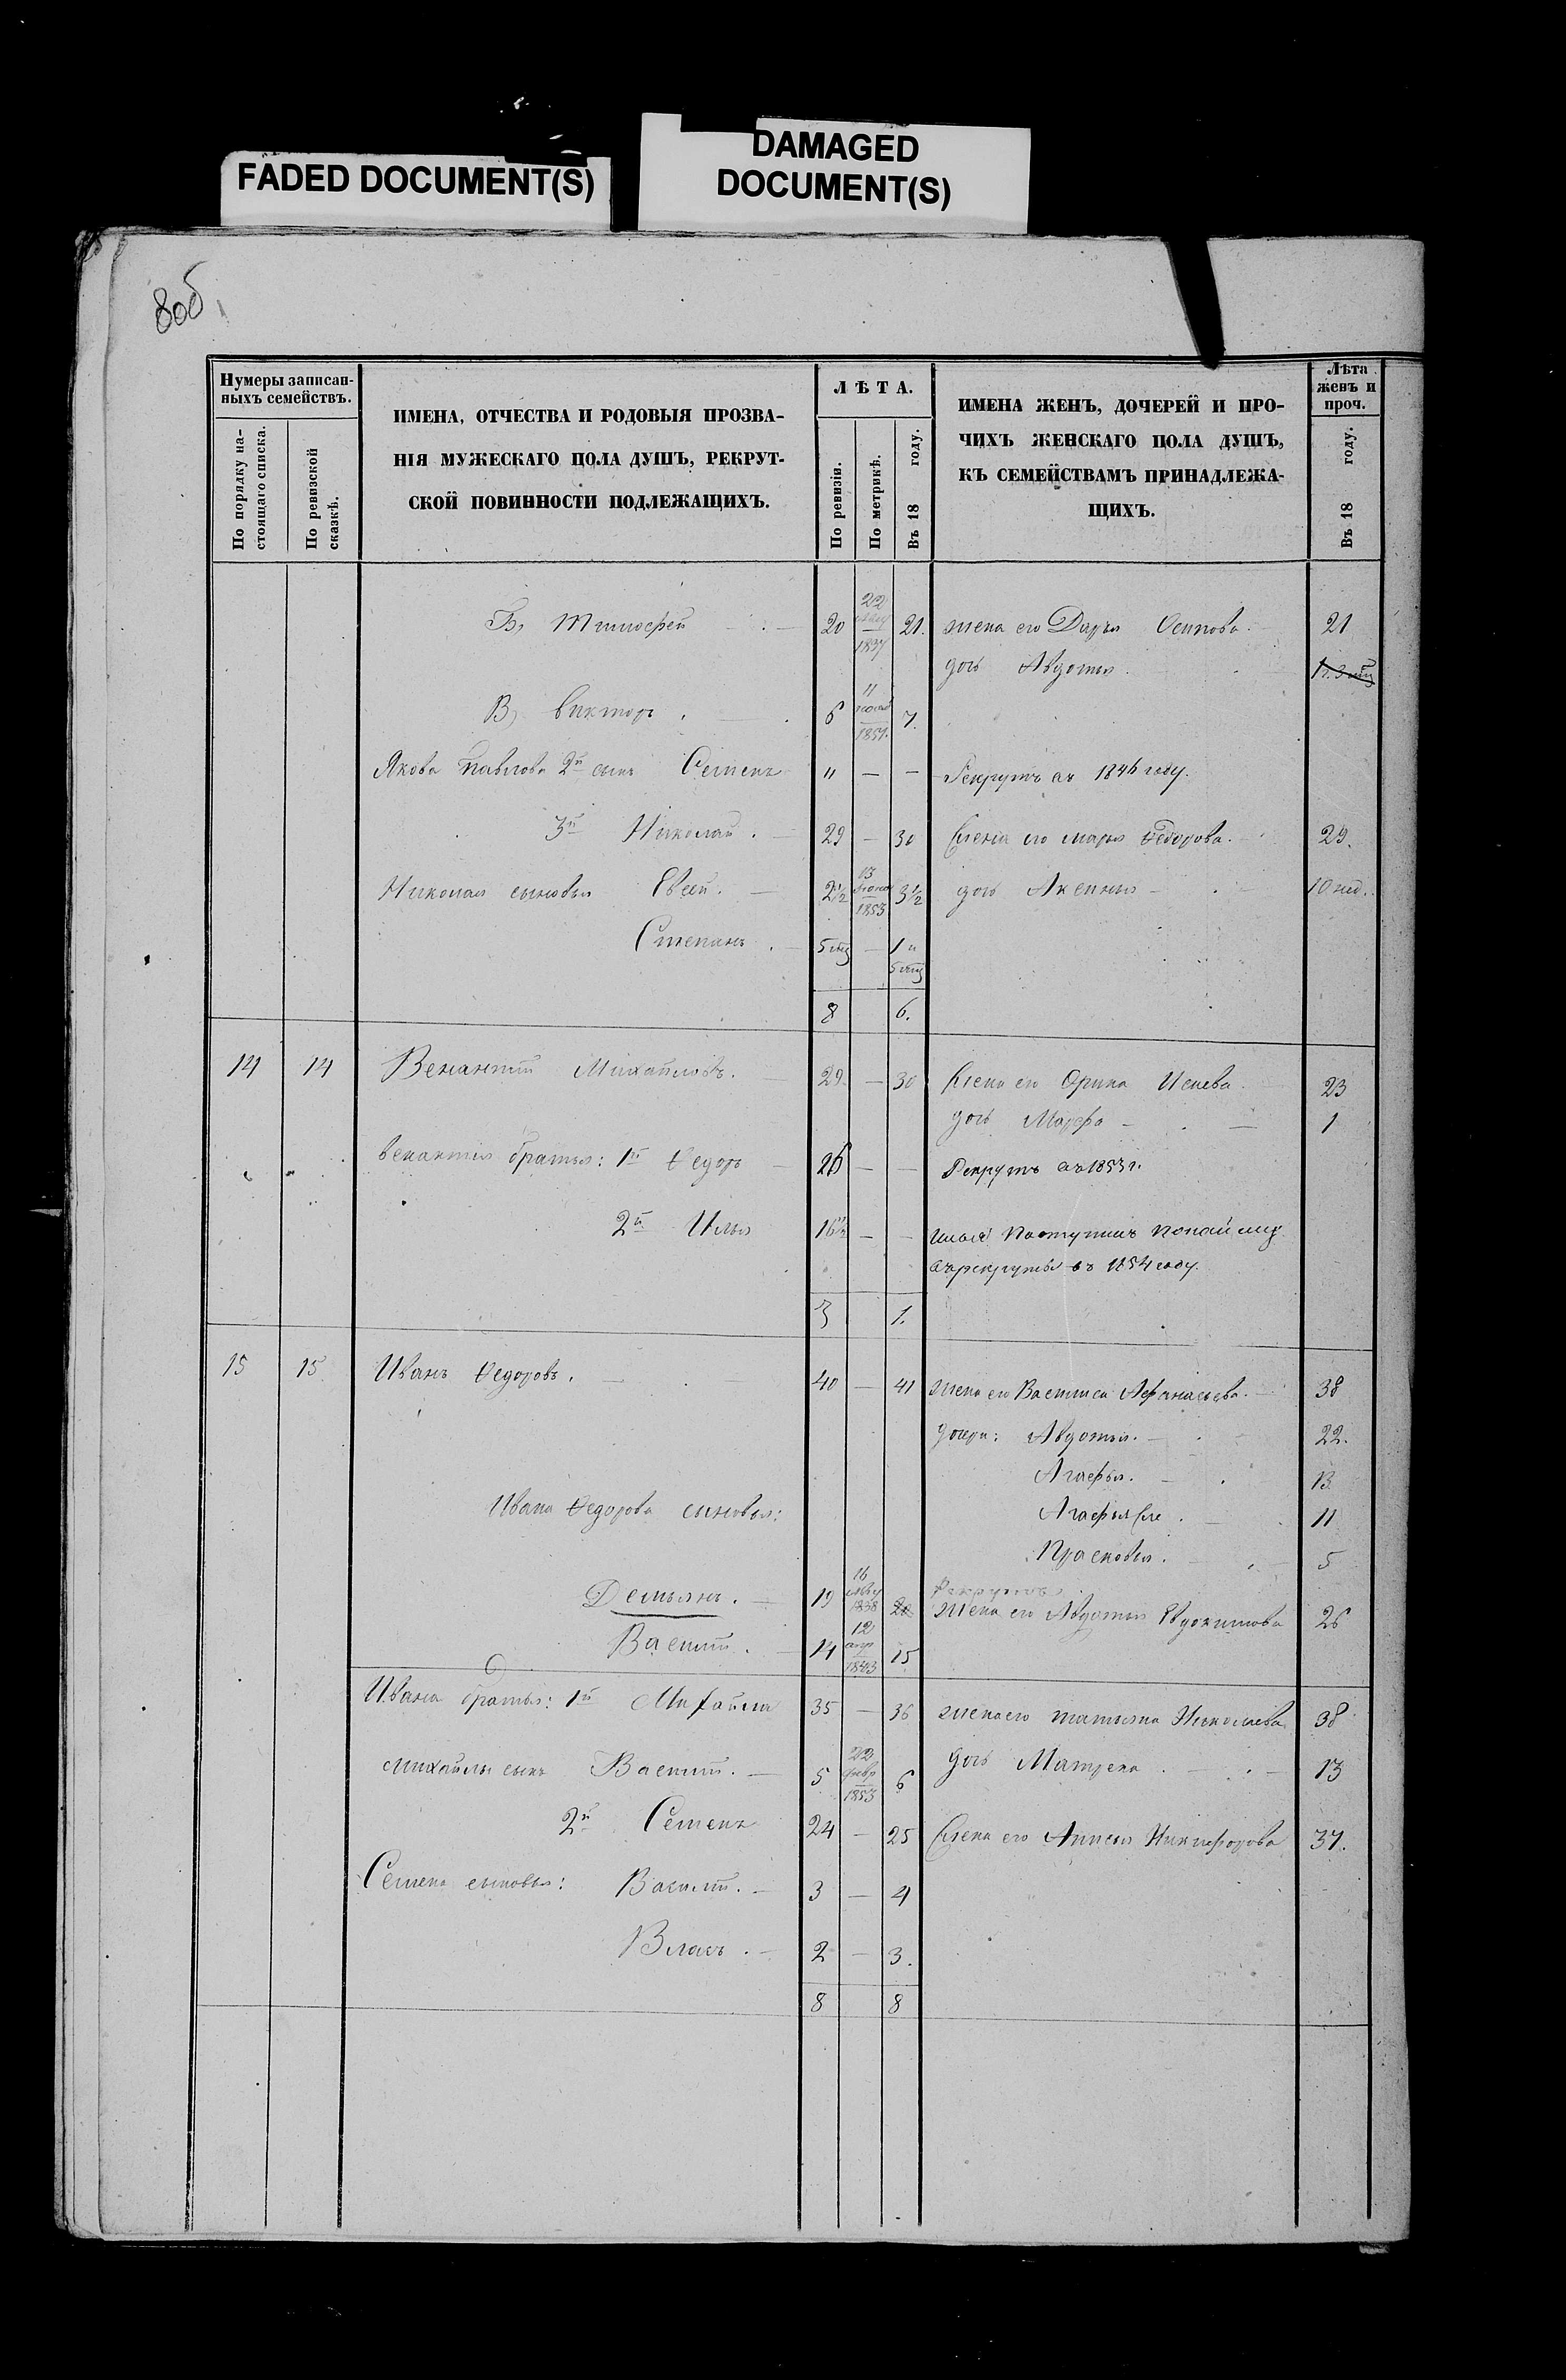 FADED DOCUMENT(S)
DAMAGED
DOCUMENT(S)
80б
Нумеры записан-
ныхъ семействъ.
По порядку на-
стоящаго списка.
По ревизской
сказкѣ.
ИМЕНА, ОТЧЕСТВА И РОДОВЫЯ ПРОЗВА-
НІЯ МУЖЕСКАГО ПОЛА ДУШЪ, РЕКРУТ-
СКОЙ ПОВИННОСТИ ПОДЛЕЖАЩИХЪ.
ЛѢТА.
По ревизіи.
По метрикѣ.
Въ 18 году.
ИМЕНА ЖЕНЪ, ДОЧЕРЕЙ И ПРО-
ЧИХЪ ЖЕНСКАГО ПОЛА ДУШЪ,
КЪ СЕМЕЙСТВАМЪ ПРИНАДЛЕЖА-
ЩИХЪ.
Лѣта
женъ и
проч.
Въ 18 году.
Б, Тимофей 20 22 1837 21. жена его Дарья Осипова 21
дочь Авдотья
В, Викторъ 6 11 1851. 7.
Якова Павлова 2й сынъ Семенъ " — — Рекрутъ съ 1846 году.
3й Николай. 29 — 30 Жена его Марья Ѳедорова. 29.
Николая сыновья Евсей. 2½ 13 1853 3½ дочь Аксинья 10 нед.
Степанъ. 5 мц — 1 и
5 мц
8 6.
14 14 Венантій Михайловъ. 29 — 30 Жена его Орина Исаева. 23
дочь Марфа 1
Венантія братья: 1й Ѳедоръ 26 — — Рекрутъ съ 1853 г.
2й Илья 16½ — — Илья Поступилъ по найму
въ рекруты въ 1854 году.
3 1.
15 15 Иванъ Ѳедоровъ. 40 — 41 жена его Васлиса Афанасьева. 38
дочери: Авдотья. 22.
Агафья. 13
Ивана Ѳедорова сыновья: Агафья же. 11
Прасковья. 5
Рекрутъ
Демьянъ. 19 16 1838 20 жена его Авдотья Евдокимова 26
Василій. 14 12 апр 1843 15
Ивана братья: 1й Михайла 35 — 36 жена его Татьяна Николаева 38
Михайлы сынъ Василій. 5 22 февр 1853 6 дочь Матрена 13
2й Семенъ 24 — 25 Жена его Анисья Никифорова 37.
Семена сыновья: Василій. 3 — 4
Власъ. 2 — 3.
8 8